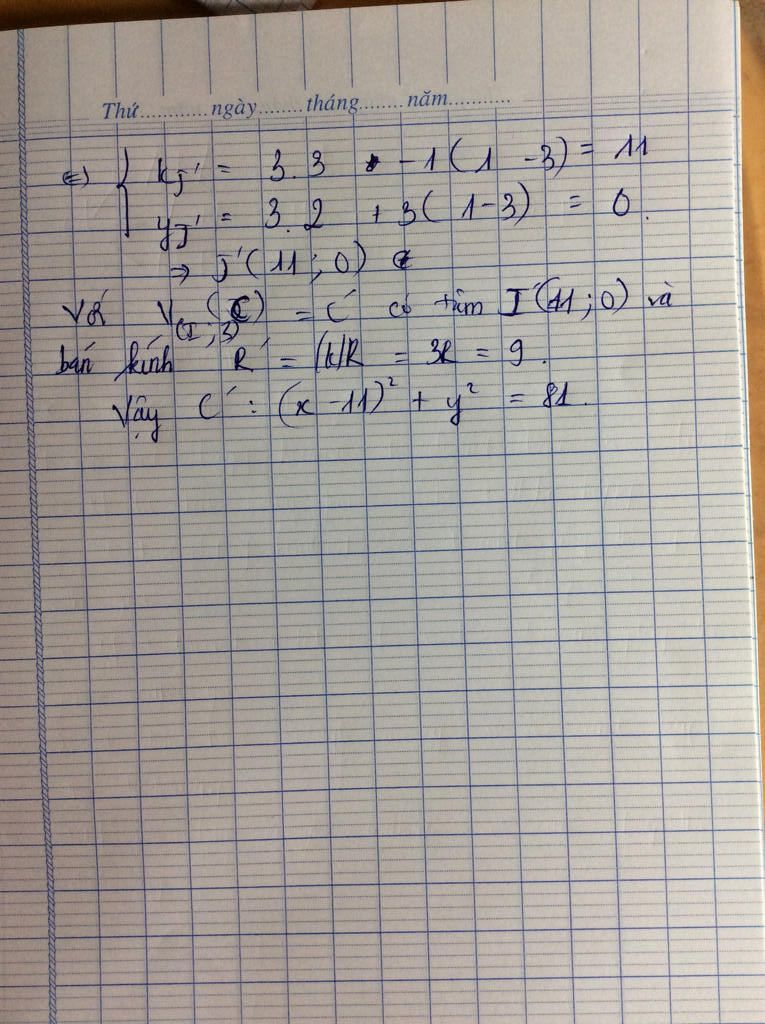 Thứ.............ngày........tháng.......năm...........
⇔ { x_J' = 3.3 -1(1 -3) = 11
y_J' = 3.2 + 3(1-3) = 0.
⇒ J'(11;0)
V_(I;3) (C) = C' có tâm I'(11;0) và
bán kính R' = |k|R = 3R = 9.
Vậy C' : (x -11)² + y² = 81.